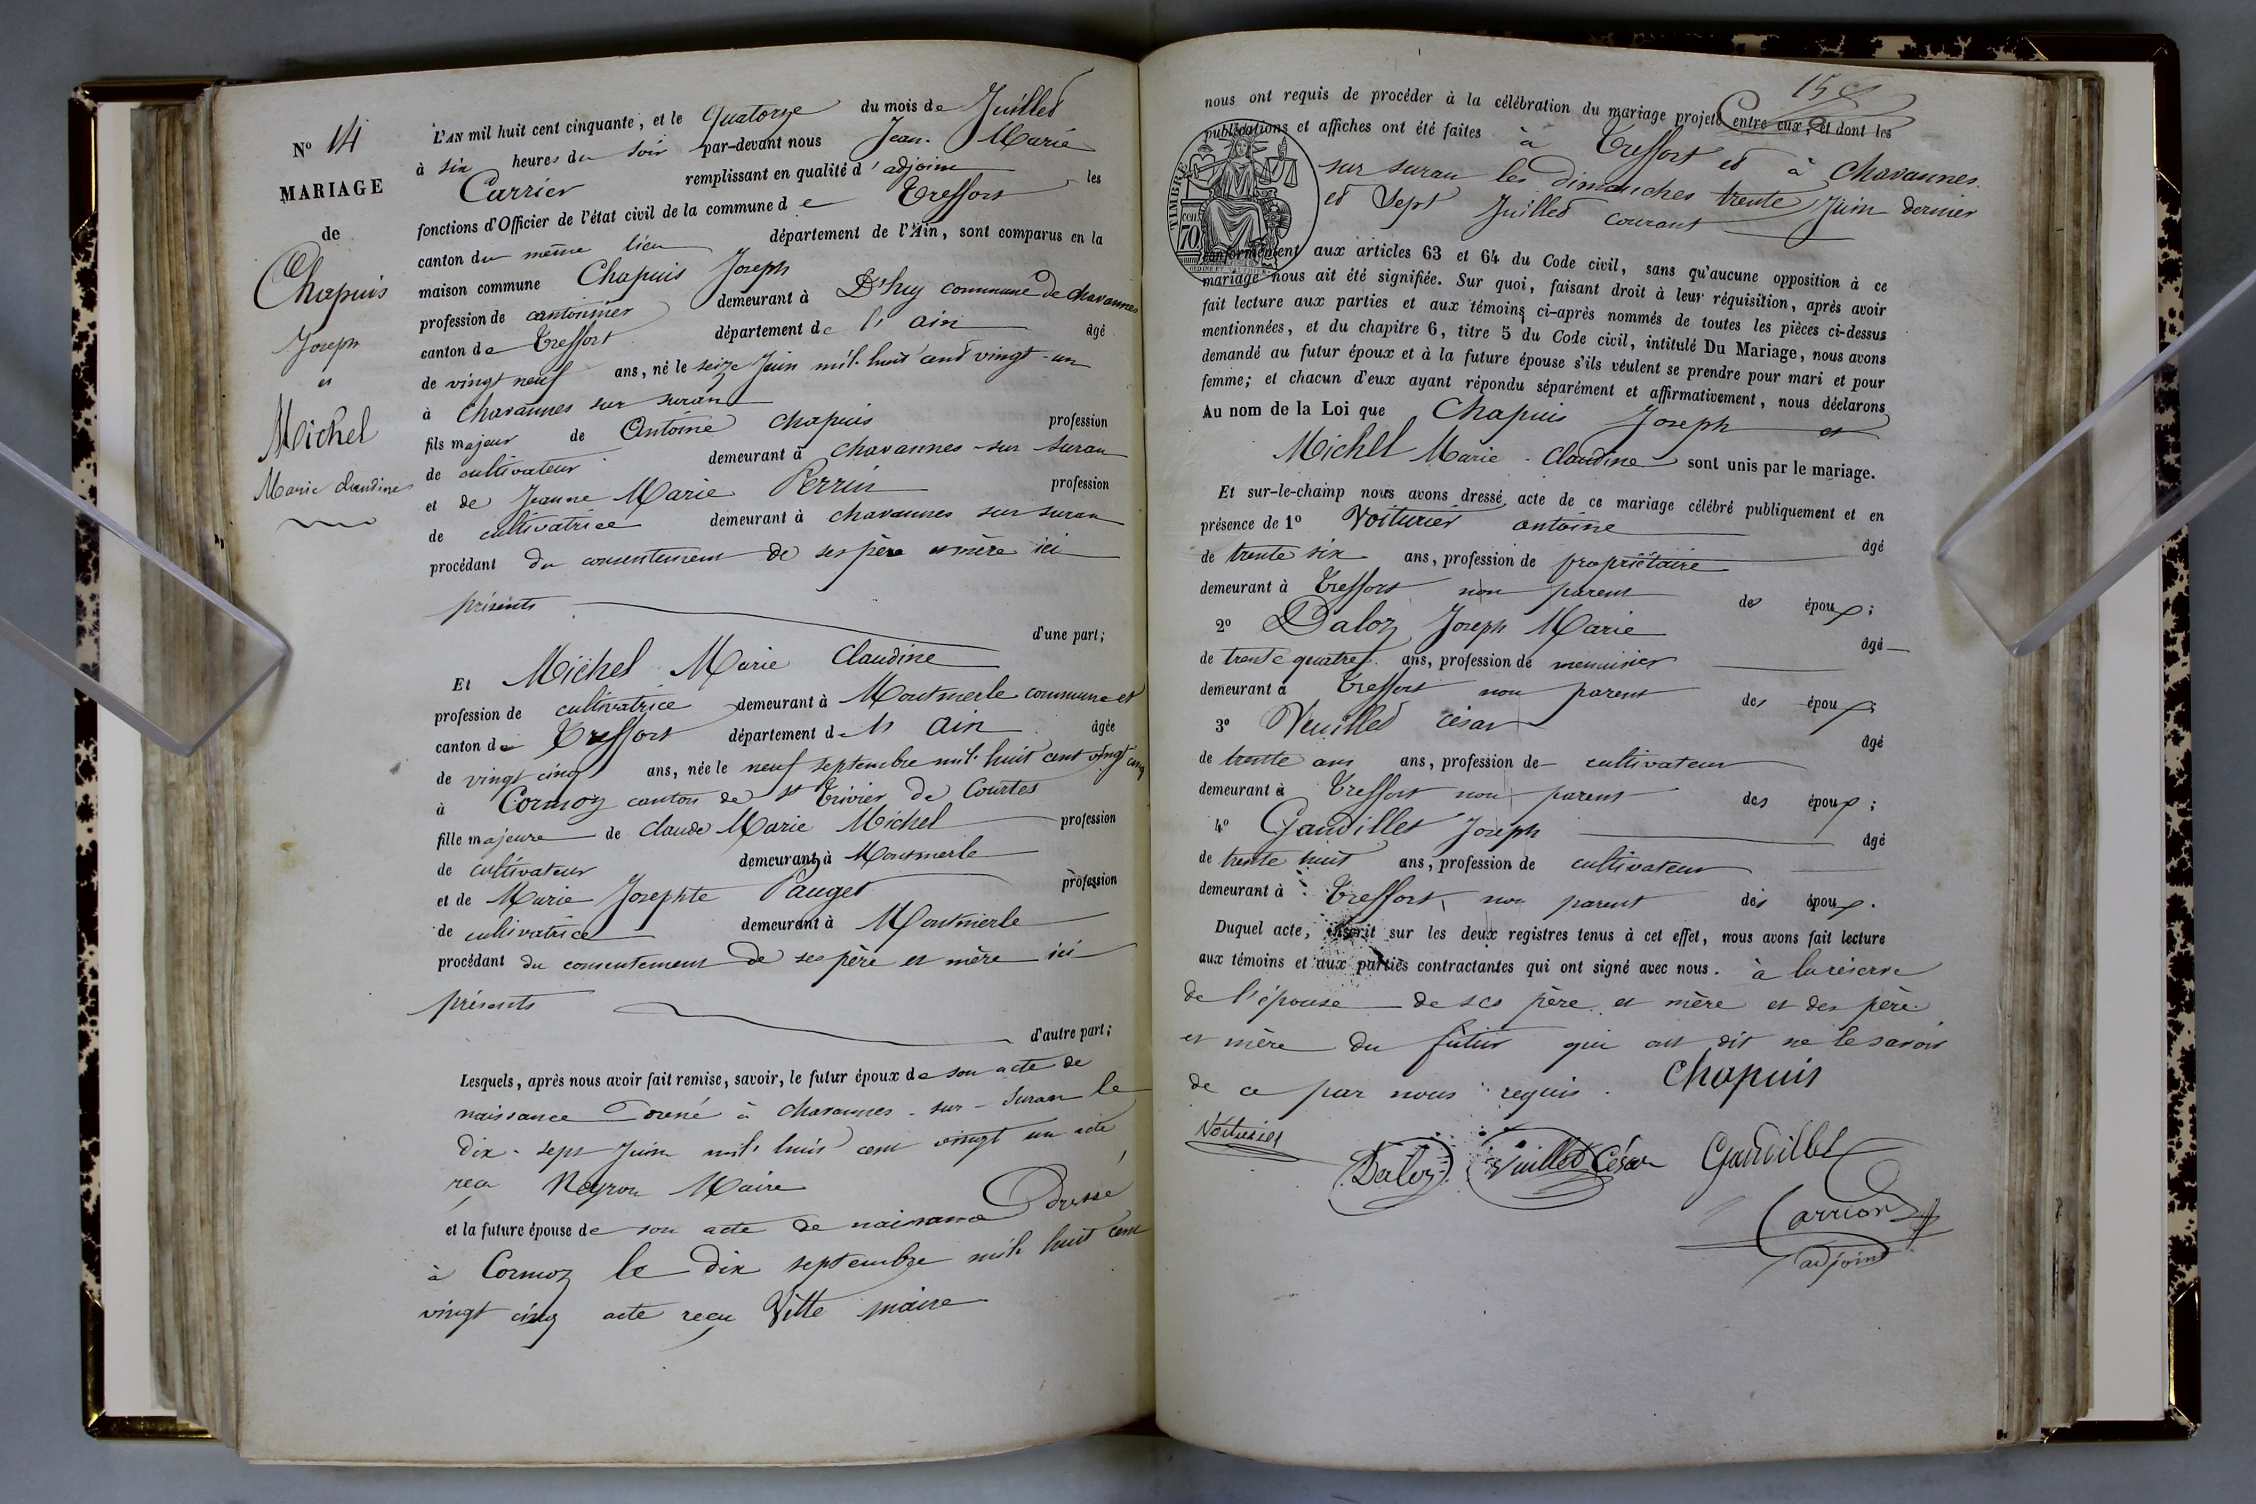 Nº 14
MARIAGE
de
Chapuis
Joseph
et
Michel
Marie Claudine
L'AN mil huit cent cinquante, et le quatorze du mois de Juillet
à six heures du soir par-devant nous Jean Marie
Carrier remplissant en qualité d'adjoint les
fonctions d'Officier de l'état civil de la commune de Treffort
canton du même lieu département de l'Ain, sont comparus en la
maison commune Chapuis Joseph
profession de cantonnier demeurant à Dhuy commune de Chavannes
canton de Treffort département de l'ain âgé
de vingt neuf ans, né le seize Juin mil huit cent vingt-un
à Chavannes sur suran
fils majeur de Antoine Chapuis profession
de cultivateur demeurant à chavannes-sur suran
et de Jeanne Marie Perrin profession
de cultivatrice demeurant à chavannes sur suran
procédant du consentement de ses père et mère ici
présents
d'une part;
Et Michel Marie Claudine
profession de cultivatrice demeurant à Montmerle commune et
canton de Treffort département de l'ain âgée
de vingt cinq ans, née le neuf septembre mil huit cent vingt cinq
à Cormoz canton de St Trivier de Courtes
fille majeure de Claude Marie Michel profession
de cultivateur demeurant à Montmerle
et de Marie Josephte Pauget profession
de cultivatrice demeurant à Montmerle
procédant du consentement de ses père et mère ici
présents
d'autre part;
Lesquels, après nous avoir fait remise, savoir, le futur époux de son acte de
naissance à chavannes-sur-Suran le
dix-sept Juin mil huit cent vingt un acte
reçu Neyron Maire
et la future épouse de son acte de naissance Dressé
à Cormoz le dix septembre mil huit cent
vingt cinq acte reçu Vitte maire
15
nous ont requis de procéder à la célébration du mariage projeté entre eux, et dont les
publications et affiches ont été faites à Treffort et à Chavannes
sur suran les dimanches trente Juin dernier
et Sept Juillet courant
TIMBRE
70
conformément aux articles 63 et 64 du Code civil, sans qu'aucune opposition à ce
mariage nous ait été signifiée. Sur quoi, faisant droit à leur réquisition, après avoir
fait lecture aux parties et aux témoins ci-après nommés de toutes les pièces ci-dessus
mentionnées, et du chapitre 6, titre 5 du Code civil, intitulé Du Mariage, nous avons
demandé au futur époux et à la future épouse s'ils veulent se prendre pour mari et pour
femme; et chacun d'eux ayant répondu séparément et affirmativement, nous déclarons
Au nom de la Loi que Chapuis Joseph et
Michel Marie-Claudine sont unis par le mariage.
Et sur-le-champ nous avons dressé acte de ce mariage célébré publiquement et en
présence de 1º Voiturier antoine âgé
de trente six ans, profession de propriétaire
demeurant à Treffort non parent des époux;
2º Daloz Joseph Marie âgé
de trente quatre ans, profession de menuisier
demeurant à Treffort non parent des époux;
3º Veuillet César âgé
de trente ans ans, profession de cultivateur
demeurant à Treffort non parent des époux;
4º Gauvillet Joseph âgé
de trente huit ans, profession de cultivateur
demeurant à Treffort, non parent des époux.
Duquel acte, inscrit sur les deux registres tenus à cet effet, nous avons fait lecture
aux témoins et aux parties contractantes qui ont signé avec nous. à la réserve
de l'épouse de ses père et mère et des père
et mère du futur qui ont dit ne le savoir
de ce par nous requis. Chapuis
Voiturier
Daloz Vuillet César Gauvillet
Carrier
adjoint